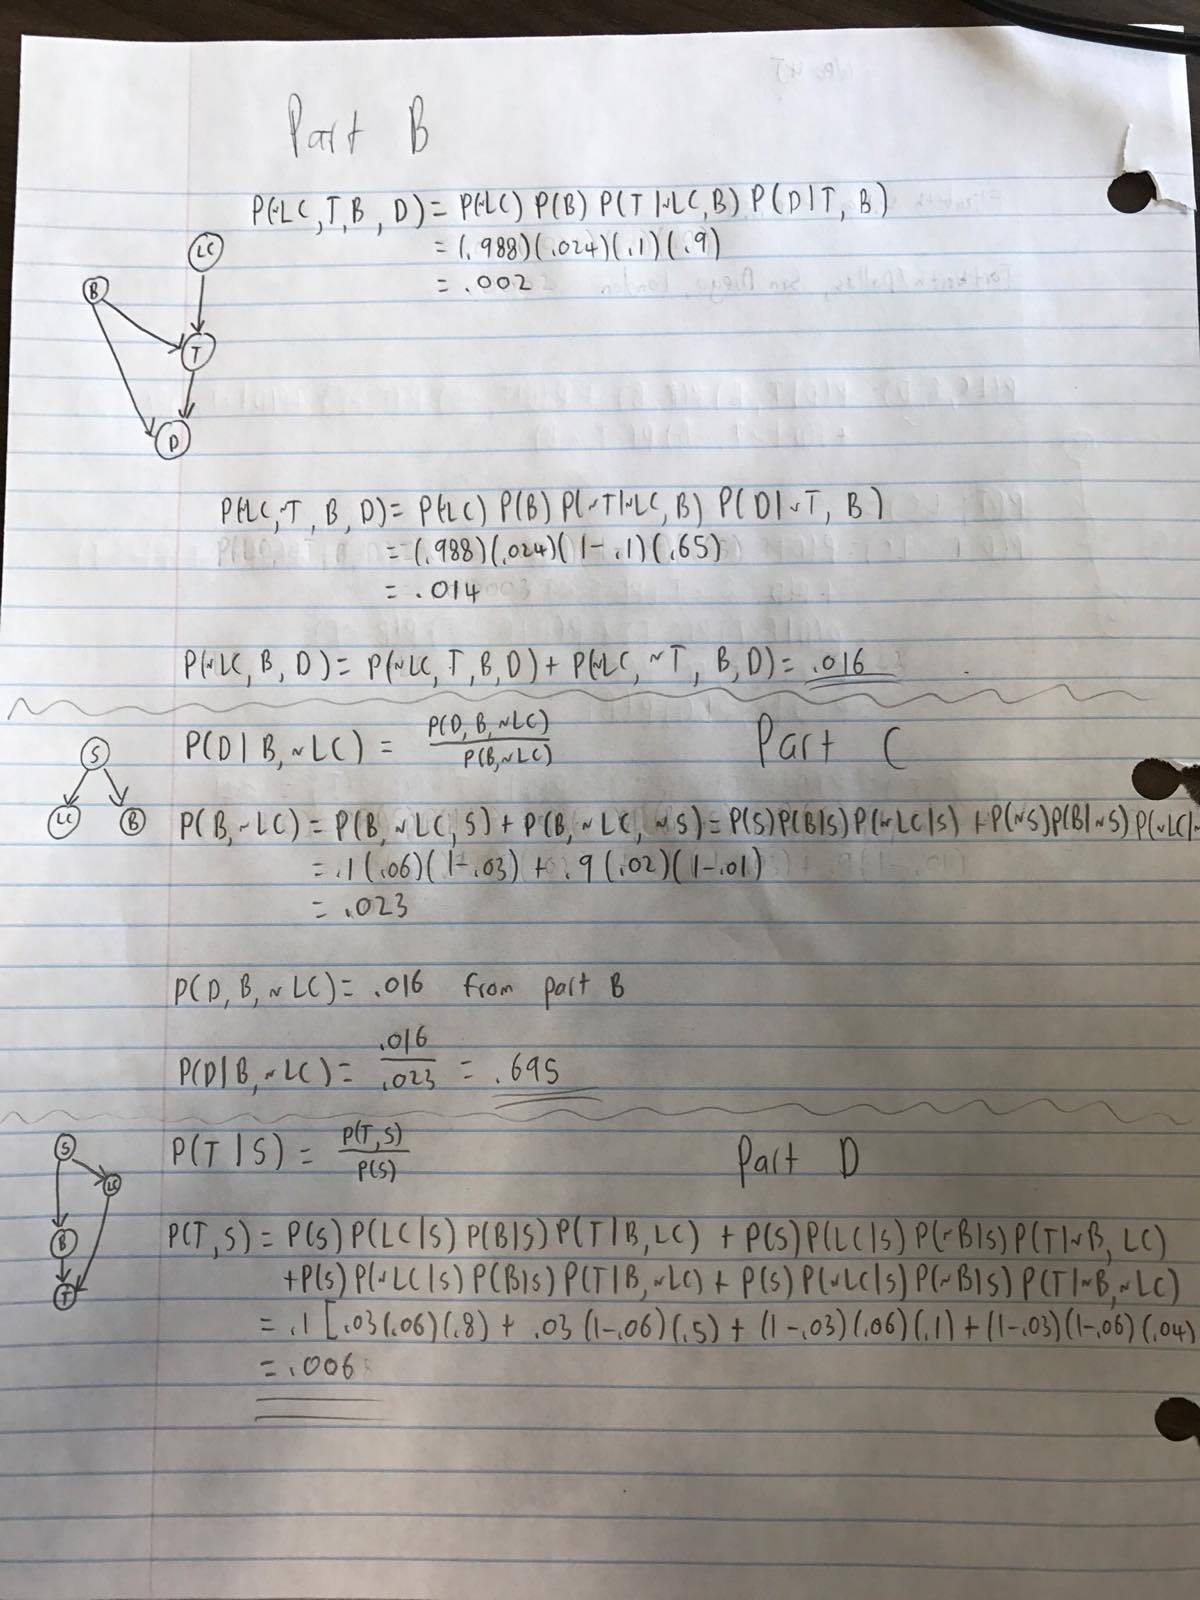 Part B
P(~LC,T,B,D) = P(~LC) P(B) P(T|~LC,B) P(D|T,B)
= (.988)(.024)(.1)(.9)
= .002
LC
B
T
D
P(~LC,~T,B,D) = P(~LC) P(B) P(~T|~LC,B) P(D|~T,B)
= (.988)(.024)(1-.1)(.65)
= .014
P(~LC,B,D) = P(~LC,T,B,D) + P(~LC,~T,B,D) = .016
P(D|B,~LC) = P(D,B,~LC) / P(B,~LC) Part C
S
LC B
P(B,~LC) = P(B,~LC,S) + P(B,~LC,~S) = P(S)P(B|S)P(~LC|S) + P(~S)P(B|~S)P(~LC|~
= .1(.06)(1-.03) + .9(.02)(1-.01)
= .023
P(D,B,~LC) = .016 from part B
P(D|B,~LC) = .016 / .023 = .695
P(T|S) = P(T,S) / P(S) Part D
S
LC
B
T
P(T,S) = P(S)P(LC|S)P(B|S)P(T|B,LC) + P(S)P(LC|S)P(~B|S)P(T|~B,LC)
+P(S)P(~LC|S)P(B|S)P(T|B,~LC) + P(S)P(~LC|S)P(~B|S)P(T|~B,~LC)
= .1[.03(.06)(.8) + .03(1-.06)(.5) + (1-.03)(.06)(.1) + (1-.03)(1-.06)(.04)
= .006